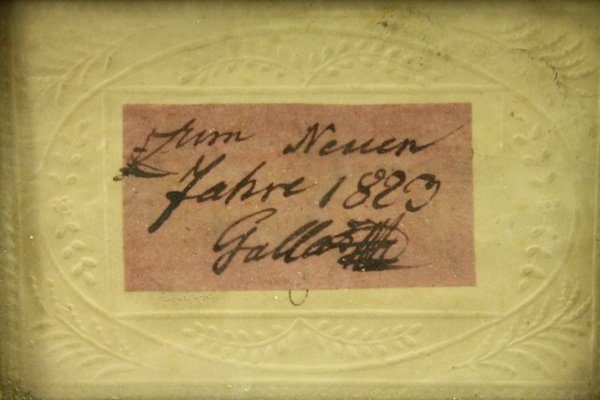 Zum Neuen
Jahre 1823
Gallas